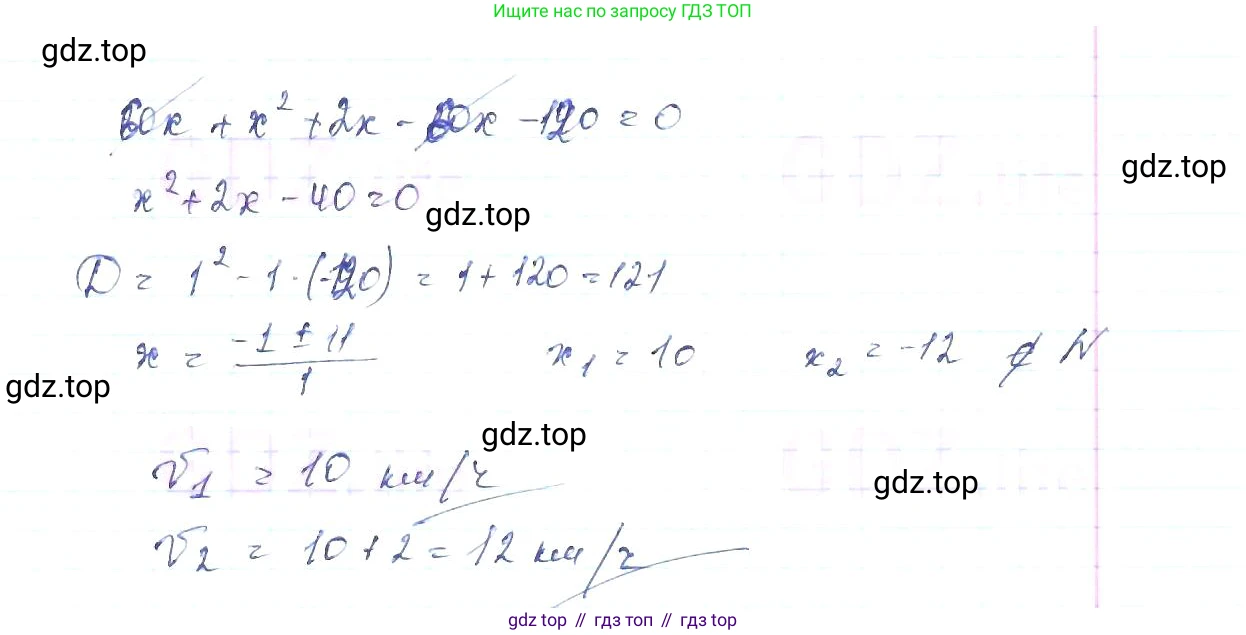 Ищите нас по запросу ГДЗ ТОП
gdz.top
60x + x² + 2x - 60x - 120 = 0
gdz.top
x² + 2x - 40 = 0
gdz.top
D = 1² - 1·(-120) = 1 + 120 = 121
x = (-1 ± 11)/1 x₁ = 10 x₂ = -12 ∉ N
gdz.top
gdz.top
v₁ = 10 км/ч
gdz.top
v₂ = 10 + 2 = 12 км/ч
gdz top // гдз топ // gdz top